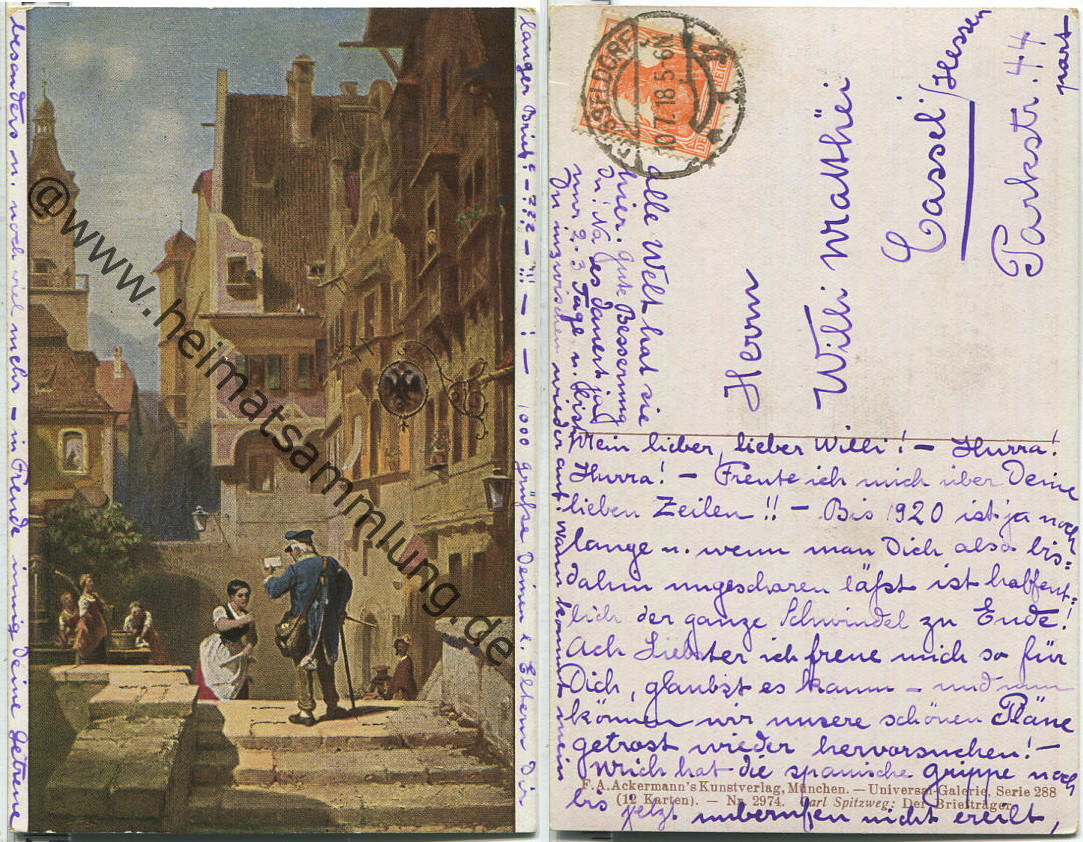 Herrn
Willi Matthëi
Cassel/Hessen
Parkstr. 44
part
DÜSSELDORF
10.7.18.5-6N
Mein lieber, lieber Willi! – Hurra!
Hurra! – Freute ich mich über Deine
lieben Zeilen!! – Bis 1920 ist ja noch
lange u. wenn man Dich also bis=
dahin ungeschoren läßt ist hoffent=
lich der ganze Schwindel zu Ende!
Ach Liebster ich freue mich so für
Dich, glaubst es kaum – und nun
können wir unsere schönen Pläne
getrost wieder hervorsuchen! –
Mich hat die spanische Grippe noch
bis jetzt unberufen nicht ereilt,
alle Welt hat sie
hier. Gute Besserung
Du! Na, es dauert ja
nur 2-3 Tage u. bist
Du inzwischen wieder auf! Wann kommt mein
langer Brief? – ??? – !!! – ! – 1000 Grüße Deinen l. Eltern Dir
besonders u. noch viel mehr – in Freude innig Deine Getreue
F. A. Ackermann's Kunstverlag, München. – Universal-Galerie, Serie 288
(12 Karten). – Nr. 2974. Carl Spitzweg: Der Briefträger
@www.heimatsammlung.de